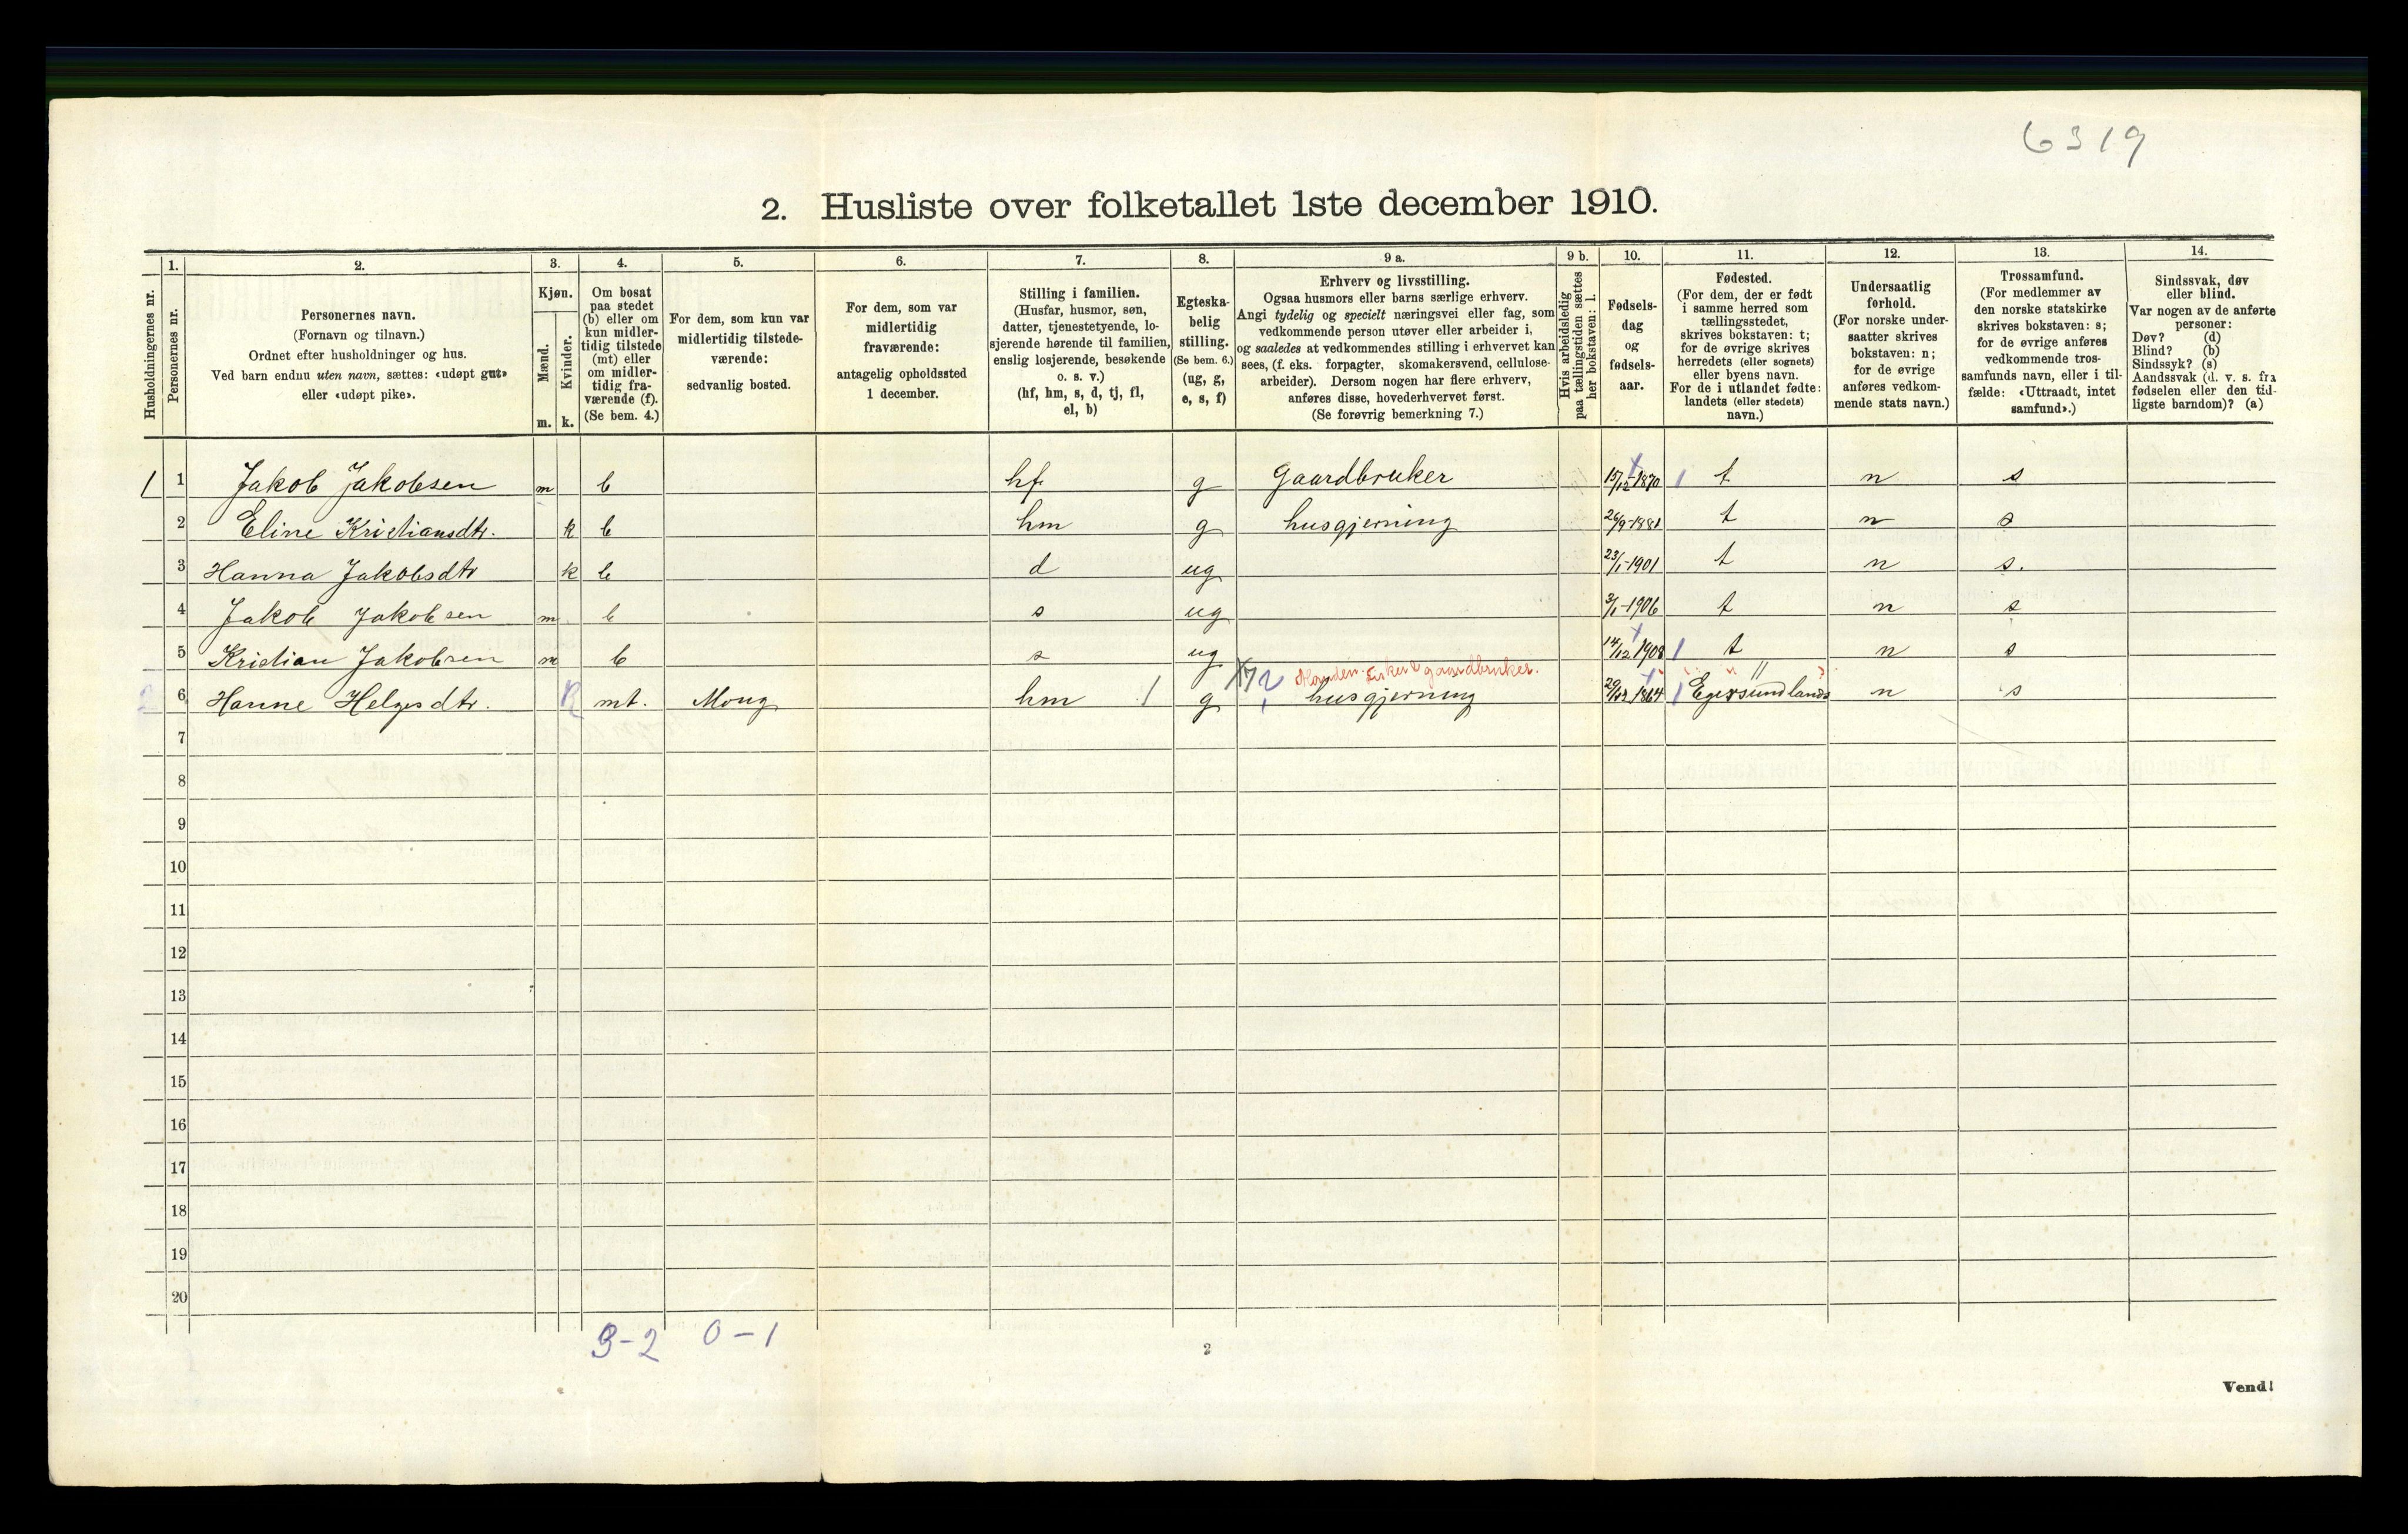 6319
2. Husliste over folketallet 1ste december 1910.
Husholdningernes nr.
1.
Personernes nr.
2.
Personernes navn.
(Fornavn og tilnavn.)
Ordnet efter husholdninger og hus.
Ved barn endnu uten navn, sættes: «udøpt gut»
eller «udøpt pike».
3.
Kjøn.
Mænd.
Kvinder.
m. k.
4.
Om bosat
paa stedet
(b) eller om
kun midler-
tidig tilstede
(mt) eller
om midler-
tidig fra-
værende (f).
(Se bem. 4.)
5.
For dem, som kun var
midlertidig tilstede-
værende:
sedvanlig bosted.
6.
For dem, som var
midlertidig
fraværende:
antagelig opholdssted
1 december.
7.
Stilling i familien.
(Husfar, husmor, søn,
datter, tjenestetyende, lo-
sjerende hørende til familien,
enslig losjerende, besøkende
o. s. v.)
(hf, hm, s, d, tj, fl,
el, b)
8.
Egteska-
belig
stilling.
(Se bem. 6.)
(ug, g,
e, s, f)
9 a.
Erhverv og livsstilling.
Ogsaa husmors eller barns særlige erhverv.
Angi tydelig og specielt næringsvei eller fag, som
vedkommende person utøver eller arbeider i,
og saaledes at vedkommendes stilling i erhvervet kan
sees, (f. eks. forpagter, skomakersvend, cellulose-
arbeider). Dersom nogen har flere erhverv,
anføres disse, hovederhvervet først.
(Se forøvrig bemerkning 7.)
9 b.
Hvis arbeidsledig
paa tællingstiden sættes
her bokstaven: l.
10.
Fødsels-
dag
og
fødsels-
aar.
11.
Fødested.
(For dem, der er født
i samme herred som
tællingsstedet,
skrives bokstaven: t;
for de øvrige skrives
herredets (eller sognets)
eller byens navn.
For de i utlandet fødte:
landets (eller stedets)
navn.)
12.
Undersaatlig
forhold.
(For norske under-
saatter skrives
bokstaven: n;
for de øvrige
anføres vedkom-
mende stats navn.)
13.
Trossamfund.
(For medlemmer av
den norske statskirke
skrives bokstaven: s;
for de øvrige anføres
vedkommende tros-
samfunds navn, eller i til-
fælde: «Uttraadt, intet
samfund».)
14.
Sindssvak, døv
eller blind.
Var nogen av de anførte
personer:
Døv? (d)
Blind? (b)
Sindssyk? (s)
Aandssvak (d. v. s. fra
fødselen eller den tid-
ligste barndom)? (a)
1 1 Jakob Jakobsen m b hf g Gaardbruker 15/12-1870 1 t n s
2 Eline Kristiansdtr. k b hm g husgjerning 26/9-1881 t n s
3 Hanna Jakobsdtr k b d ug 23/1-1901 t n s.
4 Jakob Jakobsen m b s ug 3/1-1906 t n s
5 Kristian Jakobsen m b s ug 14/12 1908 1 t n s
Manden fisker & gaardbruker.
2 6 Hanne Helgesdtr. k mt. Moug hm 1 g husgjerning 29/12 1864 1 Egersundlands n s
7
8
9
10
11
12
13
14
15
16
17
18
19
20
3-2 0-1
2
Vend!